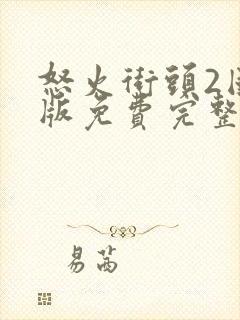 怒火街頭2国
版免費完整
易茜